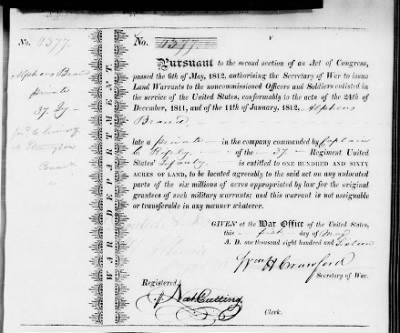 No. 1377.
private
37. Inf
No. 1377
PURSUANT to the second section of an Act of Congress,
passed the 6th of May, 1812, authorising the Secretary of War to issue
Land Warrants to the noncommissioned Officers and Soldiers enlisted in
the service of the United States, conformably to the acts of the 24th of
December, 1811, and of the 11th of January, 1812,
late a private in the company commanded by Captain
of the 37 Regiment United
States' Infantry is entitled to ONE HUNDRED AND SIXTY
ACRES OF LAND, to be located agreeably to the said act on any unlocated
parts of the six millions of acres appropriated by law for the original
grantees of such military warrants; and this warrant is not assignable
or transferable in any manner whatever.
GIVEN at the War Office of the United States,
this first day of May
A. D. one thousand eight hundred and Sixteen
Wm H Crawford
Secretary of War.
Registered
Nat Cutting
Clerk.
WAR DEPARTMENT.